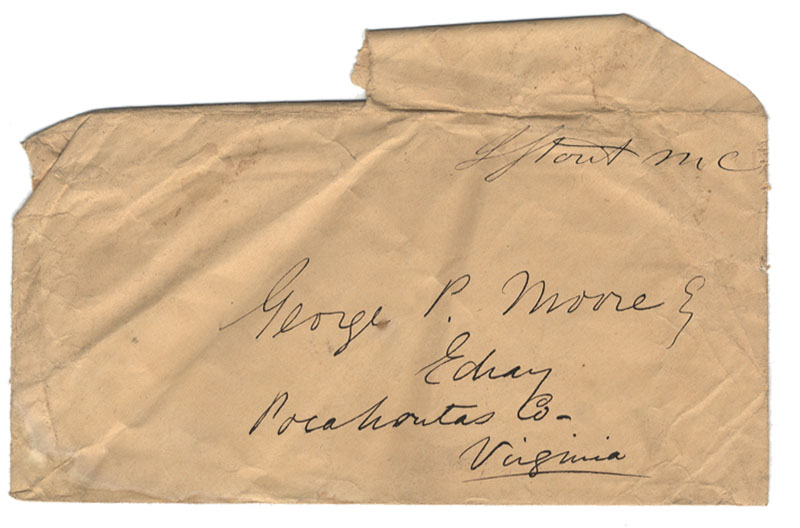 Stout M C
George P. Moore E
Edray
Pocahontas Co-
Virginia